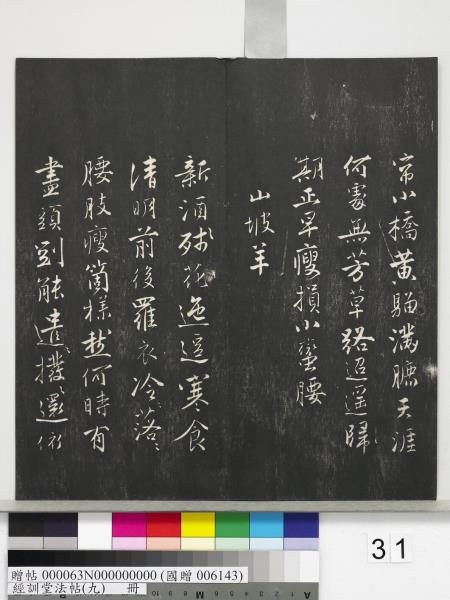 小橋黃滿聽天涯
何處無芳草路迢遥歸
期正早瘦損小蛮腰
山坡羊
新酒殘花迤逗寒食
清明前後羅衣冷落
腰肢瘦箇樣愁何時有
盡頭别能遣撥還依
31
贈帖 000063N000000000 (國贈 006143)
經訓堂法帖(九) 冊